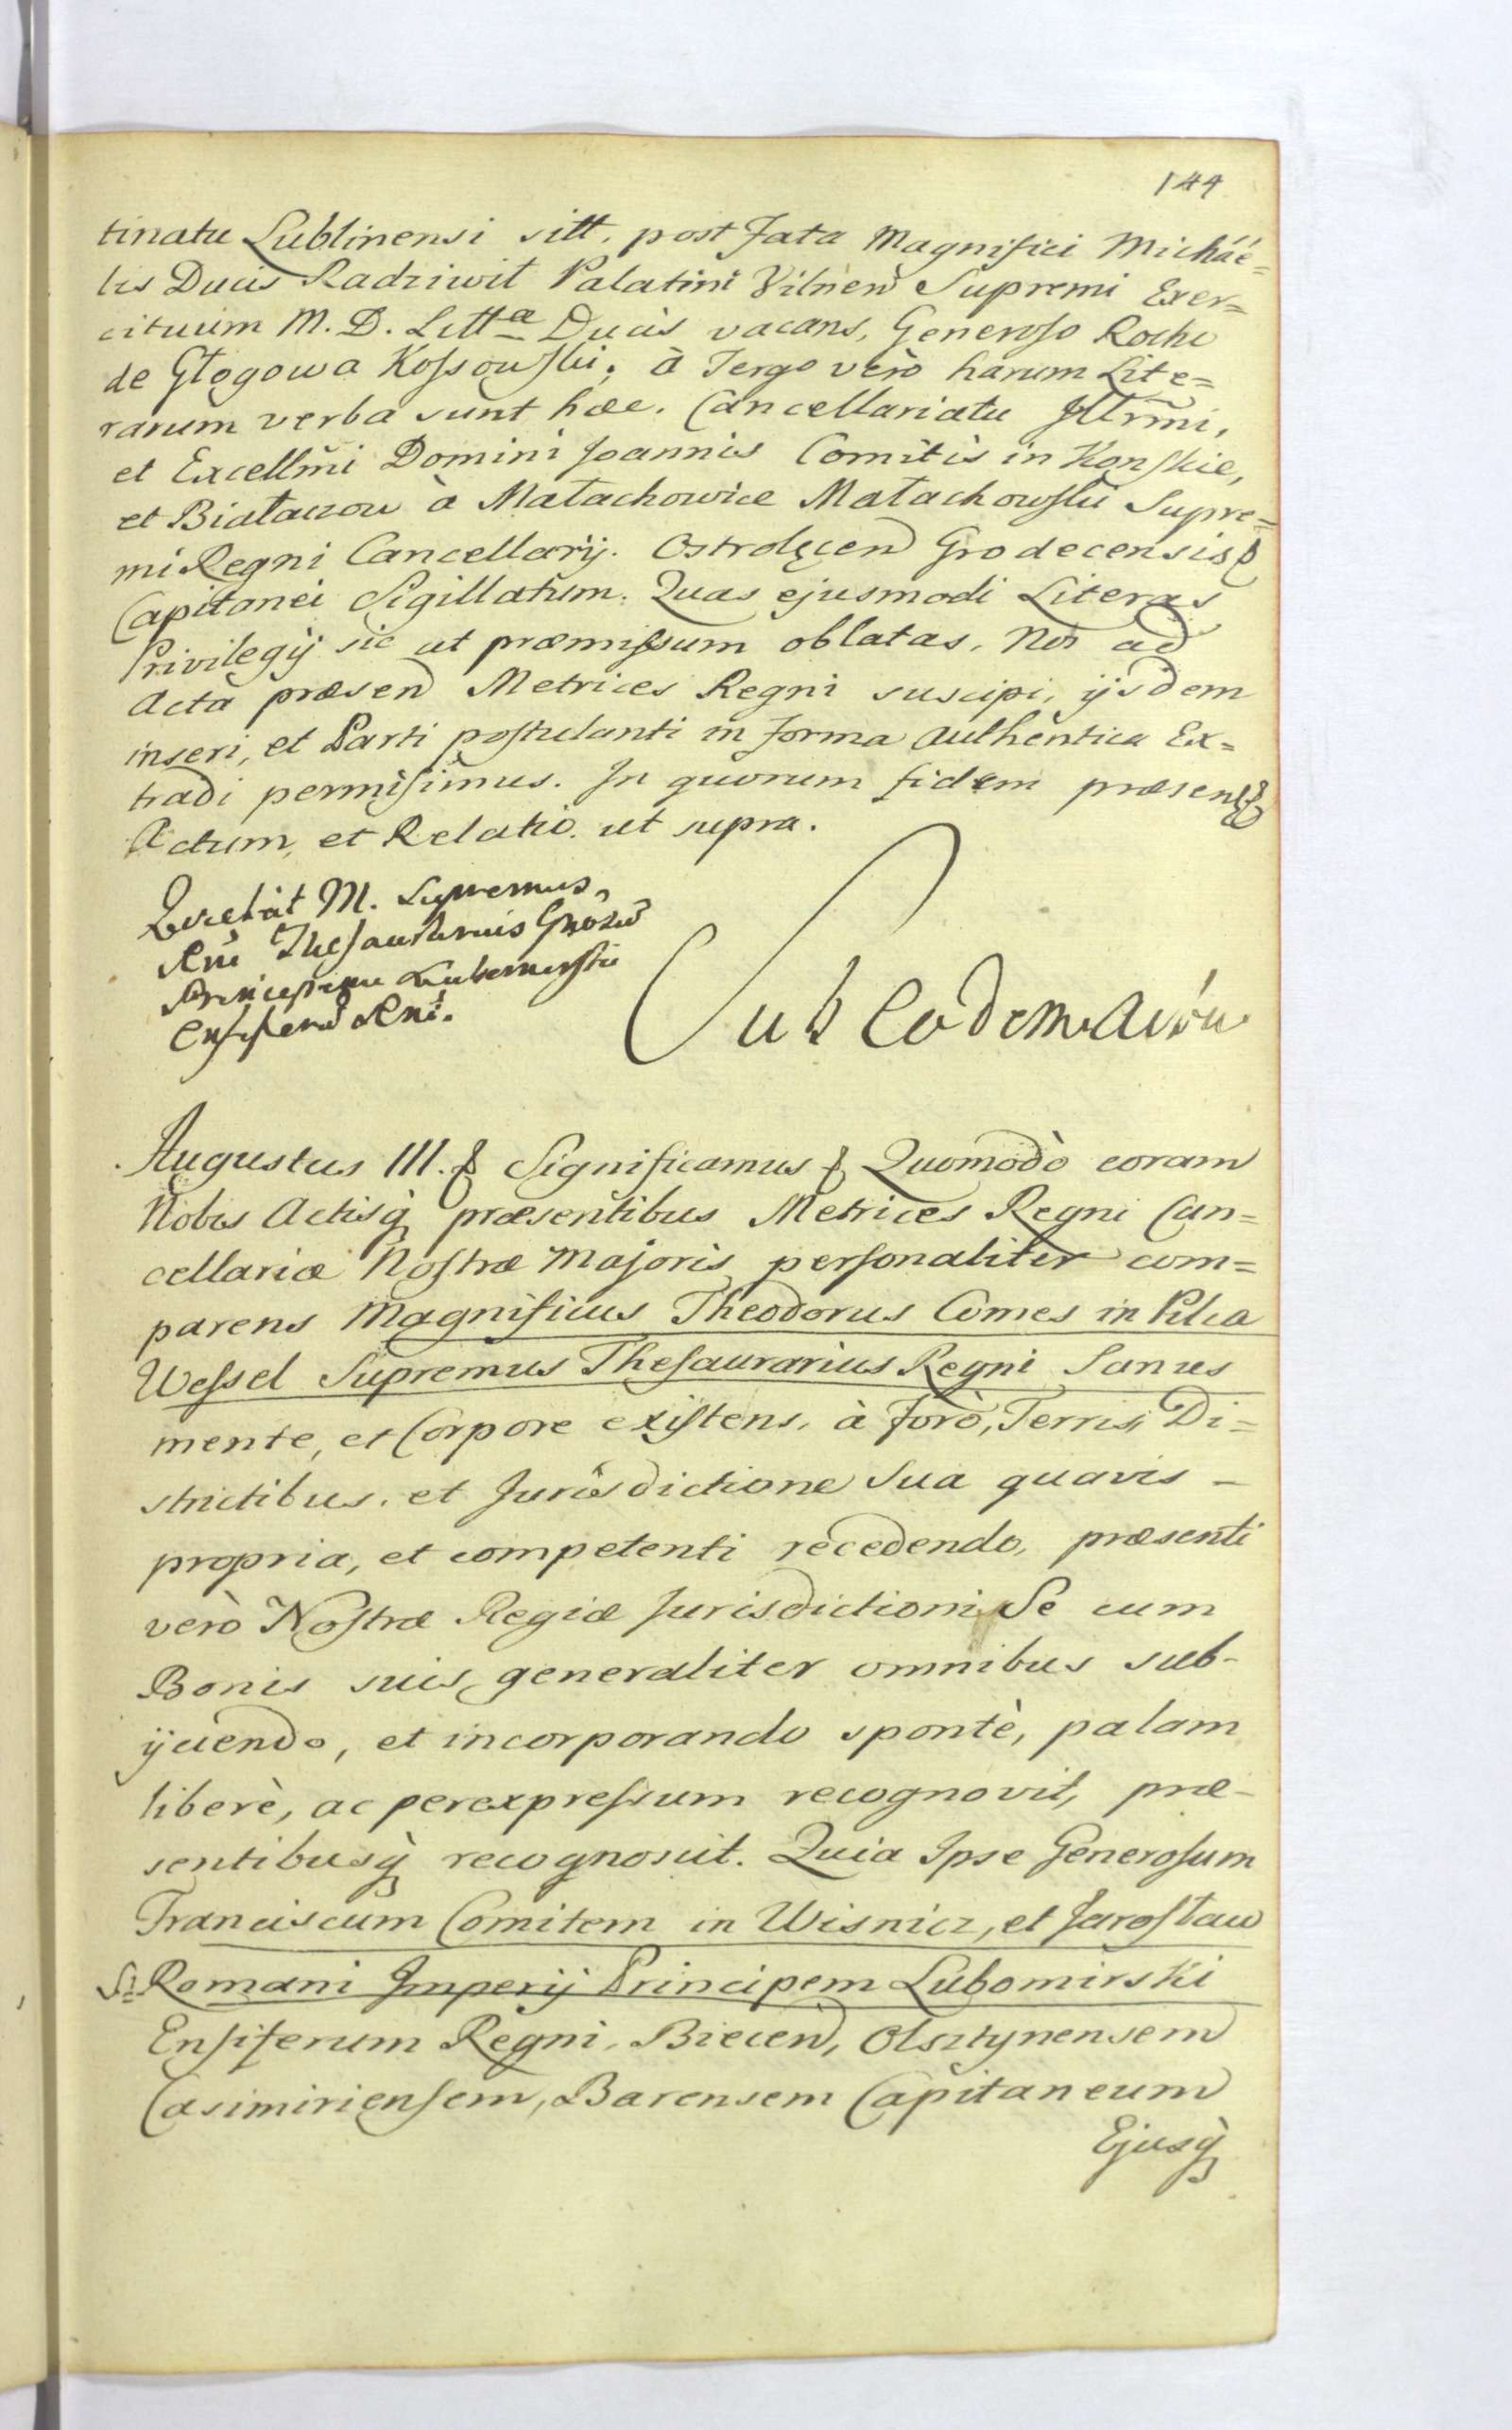 144
tinatu Lublinensi sitt. post Fata Magnifici Micháé=
lis Ducis Radziwił Palatini Vilnen Supremi Exer=
cituum M. D. Littæ Ducis vacans, Generoso Rocho
de Głogowa Kossowski; à Tergo verò harum Lite=
rarum verba sunt hæc. Cancellariatu Jllrmi,
et Excellmi Domini Joannis Comitis in Konskie,
et Białaczow à Małachowice Małachowski Supre=
mi Regni Cancellarij. Ostrolęcen Grodecensis
Capitanei Sigillatum. Quas ejusmodi Literas
Privilegij sic ut præmissum oblatas, Nos ad
Acta præsen Metrices Regni suscipi, ijsdem
inseri, et Parti postulanti in forma authentica Ex=
tradi permisimus. In quorum fidem præsen
Actum, et Relatio ut supra.
Quietat M. Supremus
Rni Thesaurarius
Principem Lubomirski
Ensiferum Rni.
Sub Eadem
Augustus III. Significamus Quomodò coram
Nobis Actisq præsentibus Metrices Regni Can=
cellariæ Nostræ Majoris personaliter com=
parens Magnificus Theodorus Comes in Pilca
Wessel Supremus Thesaurarius Regni Sanus
mente, et Corpore existens, à forò, Terris, Di=
strictibus, et Jurisdictione Sua quavis -
propria, et competenti recedendo, præsenti
verò Nostræ Regiæ Jurisdictioni Se cum
Bonis suis generaliter omnibus sub-
ijciendo, et incorporando spontè, palam
liberè, ac perexpressum recognovit, præ-
sentibusq recognoscit. Quia Ipse Generosum
Franciscum Comitem in Wisnicz, et Jarosław
S. Romani Imperij Principem Lubomirski
Ensiferum Regni, Biecen, Olsztynensem
Casimiriensem, Barensem Capitaneum
Ejusq